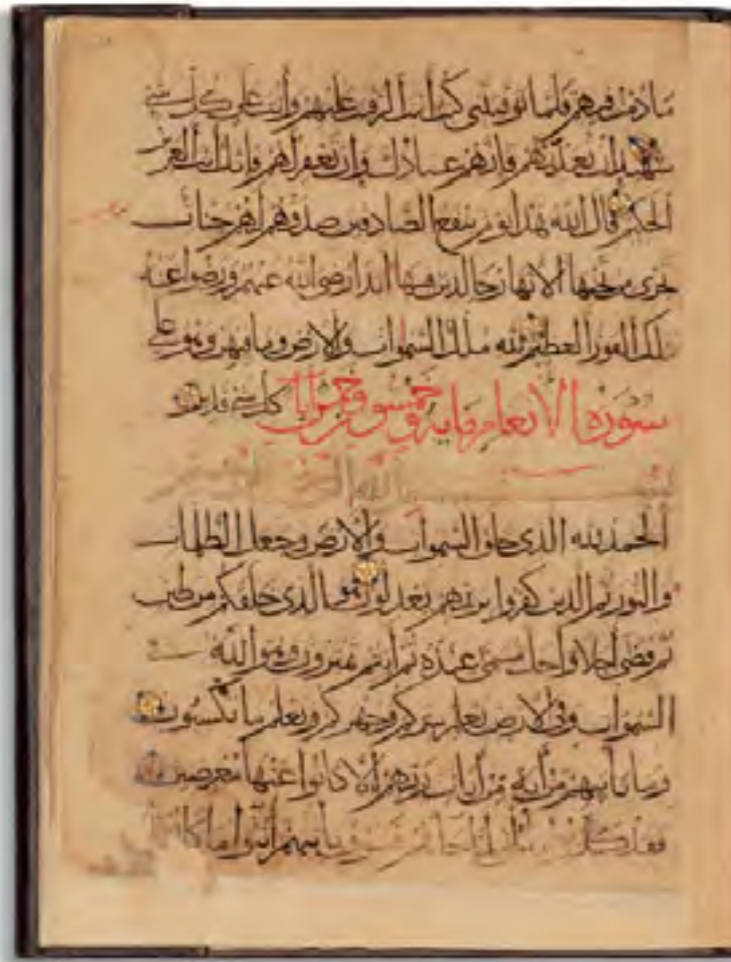 ما دمت فيهم فلما توفيتني كنت أنت الرقيب عليهم وأنت على كل شي
شهيد ان تعذبهم فانهم عبادك وان تغفر لهم فانك أنت العزيز
الحكيم قال الله هذا يوم ينفع الصادقين صدقهم لهم جنات
تجري من تحتها الانهار خالدين فيها ابدا رضي الله عنهم ورضوا عنه
ذلك الفوز العظيم لله ملك السموات والارض وما فيهن وهو على
كل شي قدير
سورة الانعام ماية وخمس وستون آيات
بسم الله الرحمن الرحيم
الحمد لله الذي خلق السموات والارض وجعل الظلمات
والنور ثم الذين كفروا بربهم يعدلون هو الذي خلقكم من طين
ثم قضى أجلا وأجل مسمى عنده ثم أنتم تمترون وهو الله في
السموات وفي الارض يعلم سركم وجهركم ويعلم ما تكسبون
وما تأتيهم من آية من آيات ربهم إلا كانوا عنها معرضين
فقد كذبوا بالحق لما جاءهم فسوف يأتيهم أنبؤا ما كانوا